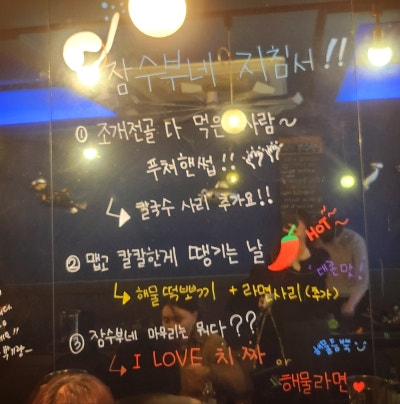 잠수부네 지침서!!
① 조개전골 다 먹은 사람~
푸쳐핸썹!!
↳ 칼국수 사리 추가요!!
② 맵고 칼칼한게 땡기는 날
HOT~
↳ 해물떡뽀끼 + 라면사리(추가)
③ 잠수부네 마무리는 뭐다??
↳ I LOVE 치짜 or
해물라면